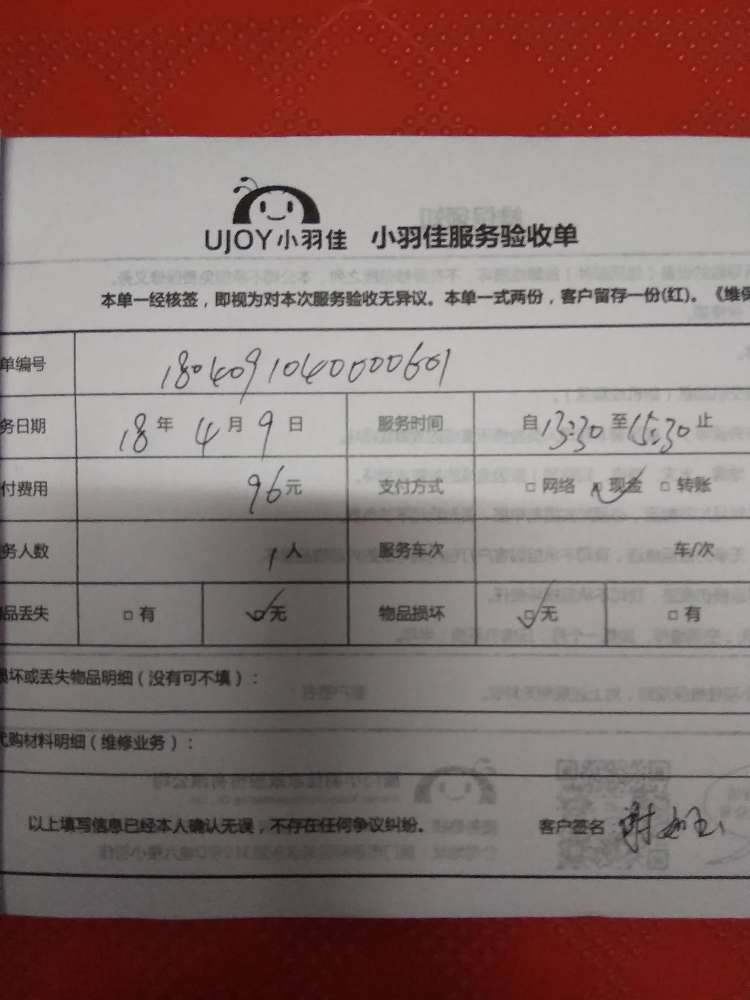 UJOY小羽佳 小羽佳服务验收单
本单一经核签，即视为对本次服务验收无异议。本单一式两份，客户留存一份(红)。《维保
单编号 1804091040000601
务日期 18年4月9日 服务时间 自13:30至15:30止
付费用 96元 支付方式 □ 网络 □ 现金 □ 转账
务人数 1人 服务车次 车/次
品丢失 □ 有 □ 无 物品损坏 □ 无 □ 有
损坏或丢失物品明细（没有可不填）：
代购材料明细（维修业务）：
以上填写信息已经本人确认无误，不存在任何争议纠纷。 客户签名：谢